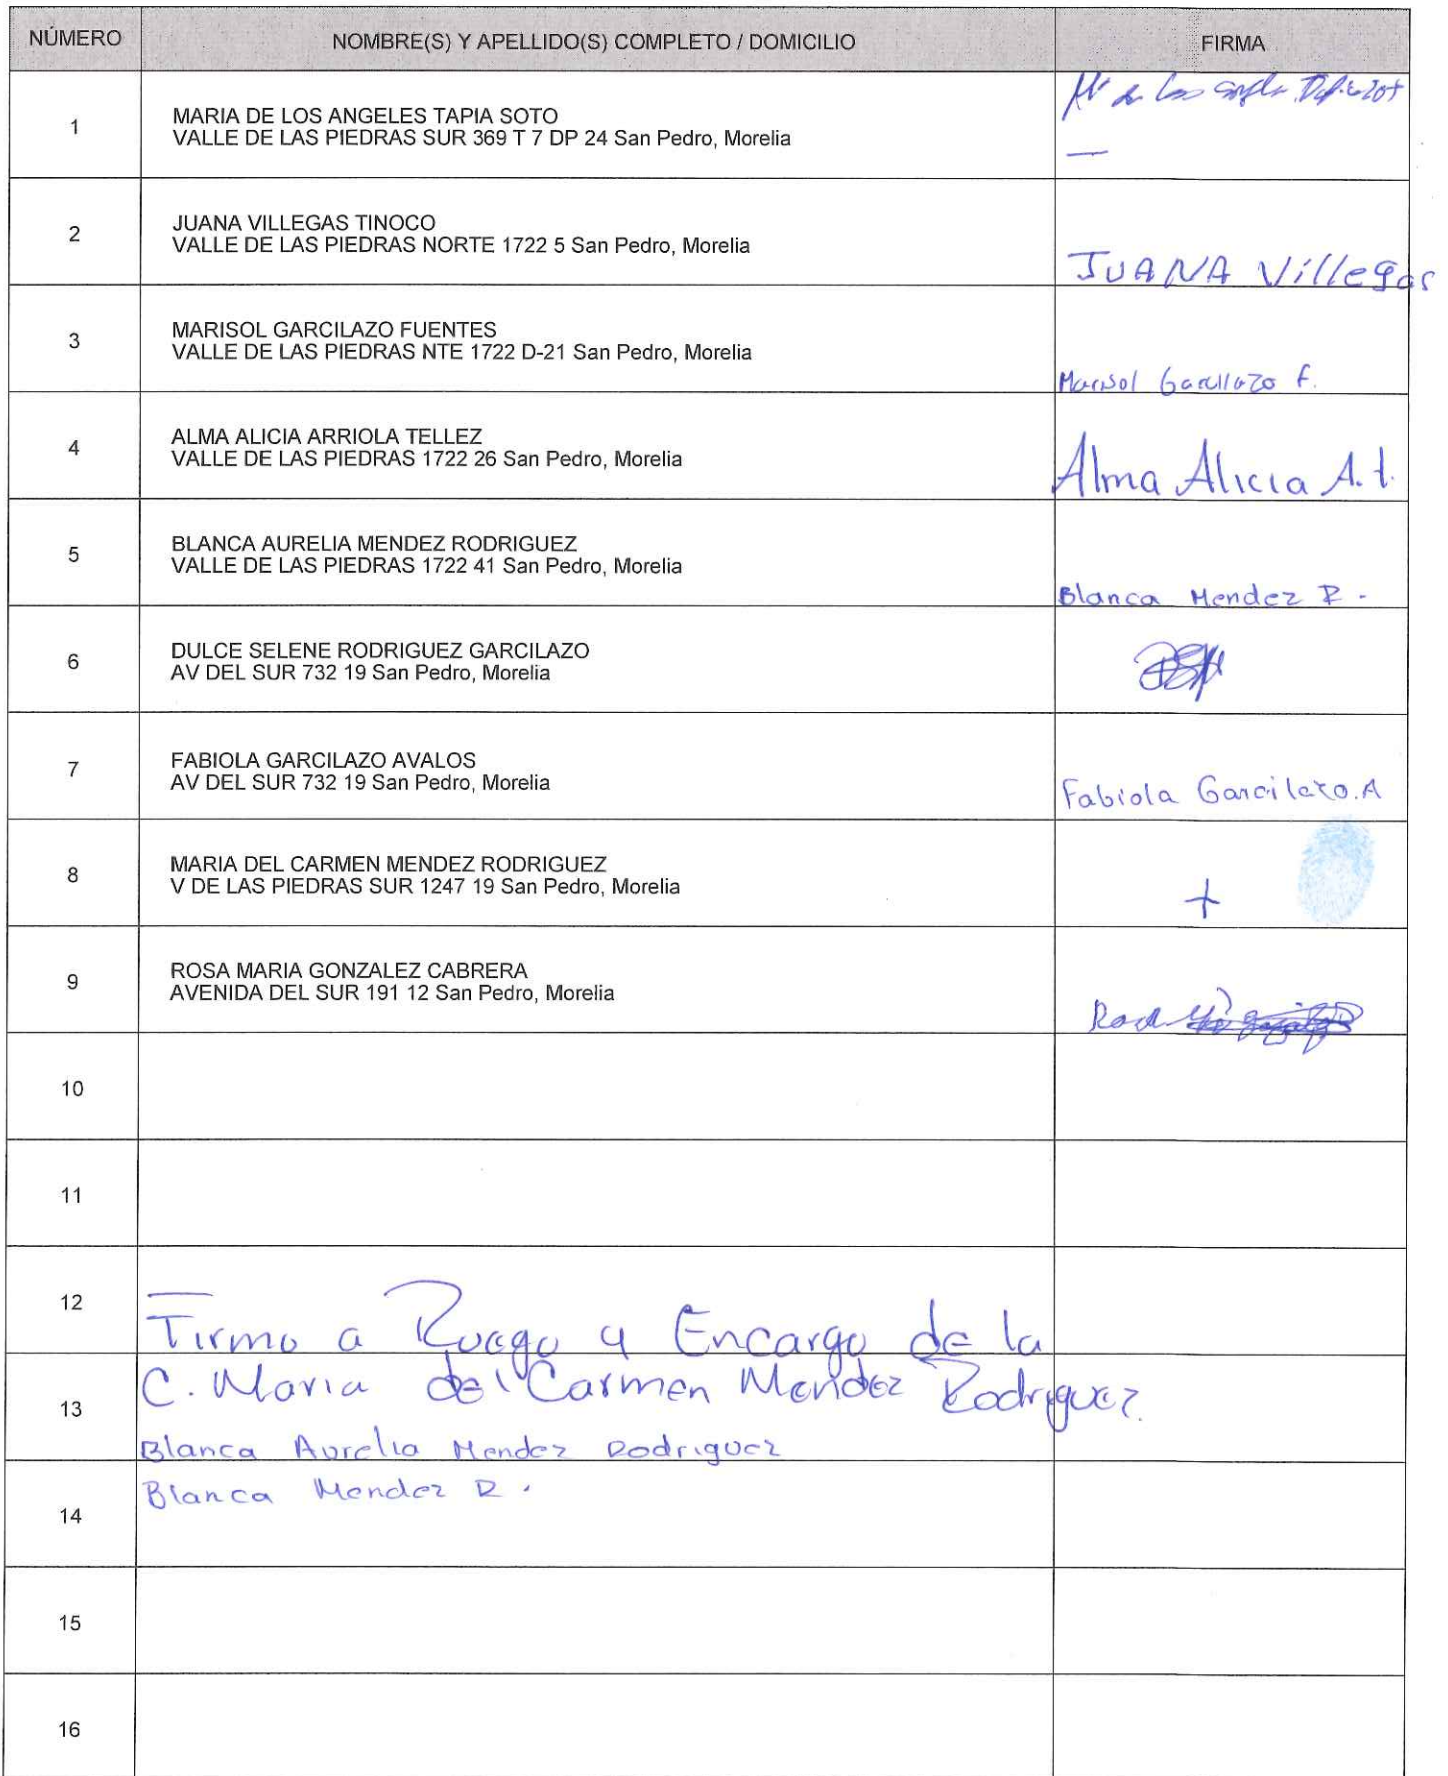 NÚMERO NOMBRE(S) Y APELLIDO(S) COMPLETO / DOMICILIO FIRMA
1
MARIA DE LOS ANGELES TAPIA SOTO
VALLE DE LAS PIEDRAS SUR 369 T 7 DP 24 San Pedro, Morelia
2
JUANA VILLEGAS TINOCO
VALLE DE LAS PIEDRAS NORTE 1722 5 San Pedro, Morelia
JUANA Villegas
3
MARISOL GARCILAZO FUENTES
VALLE DE LAS PIEDRAS NTE 1722 D-21 San Pedro, Morelia
Marisol Garcilazo F.
4
ALMA ALICIA ARRIOLA TELLEZ
VALLE DE LAS PIEDRAS 1722 26 San Pedro, Morelia
Alma Alicia A. t.
5
BLANCA AURELIA MENDEZ RODRIGUEZ
VALLE DE LAS PIEDRAS 1722 41 San Pedro, Morelia
Blanca Mendez R.
6
DULCE SELENE RODRIGUEZ GARCILAZO
AV DEL SUR 732 19 San Pedro, Morelia
7
FABIOLA GARCILAZO AVALOS
AV DEL SUR 732 19 San Pedro, Morelia
Fabiola Garcilazo.A
8
MARIA DEL CARMEN MENDEZ RODRIGUEZ
V DE LAS PIEDRAS SUR 1247 19 San Pedro, Morelia
+
9
ROSA MARIA GONZALEZ CABRERA
AVENIDA DEL SUR 191 12 San Pedro, Morelia
10
11
12
Firmo a Ruego y Encargo de la
13
C. Maria del Carmen Mendez Rodriguez
Blanca Aurelia Mendez Rodriguez
14
Blanca Mendez R.
15
16